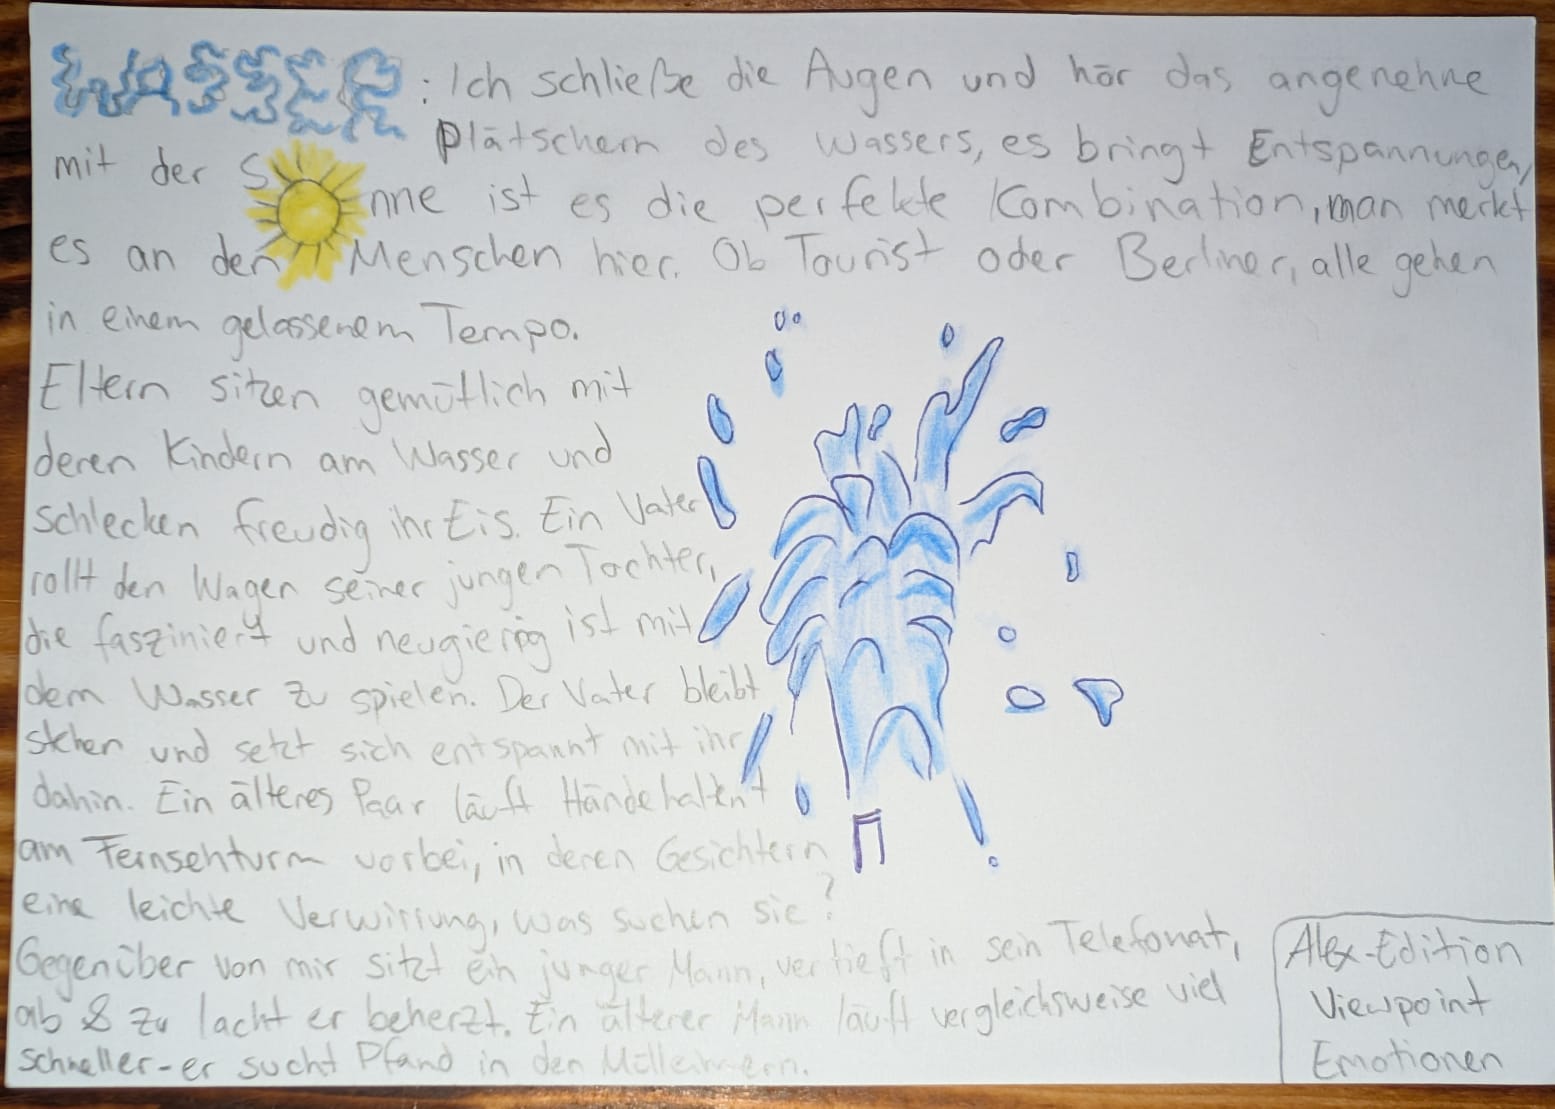 WASSER: Ich schließe die Augen und hör das angenehme
Plätschern des Wassers, es bringt Entspannungen,
mit der Sonne ist es die perfekte Kombination, man merkt
es an den Menschen hier. Ob Tourist oder Berliner, alle gehen
in einem gelassenem Tempo.
Eltern sitzen gemütlich mit
deren Kindern am Wasser und
schlecken freudig ihr Eis. Ein Vater
rollt den Wagen seiner jungen Tochter,
die fasziniert und neugierig ist mit
dem Wasser zu spielen. Der Vater bleibt
stehen und setzt sich entspannt mit ihr
dahin. Ein älteres Paar läuft Händehaltent
am Fernsehturm vorbei, in deren Gesichtern
eine leichte Verwirrung, was suchen sie?
Gegenüber von mir sitzt ein junger Mann, vertieft in sein Telefonat,
ab & zu lacht er beherzt. Ein älterer Mann läuft vergleichsweise viel
schneller-er sucht Pfand in den Mülleimern.
Alex-Edition
Viewpoint
Emotionen